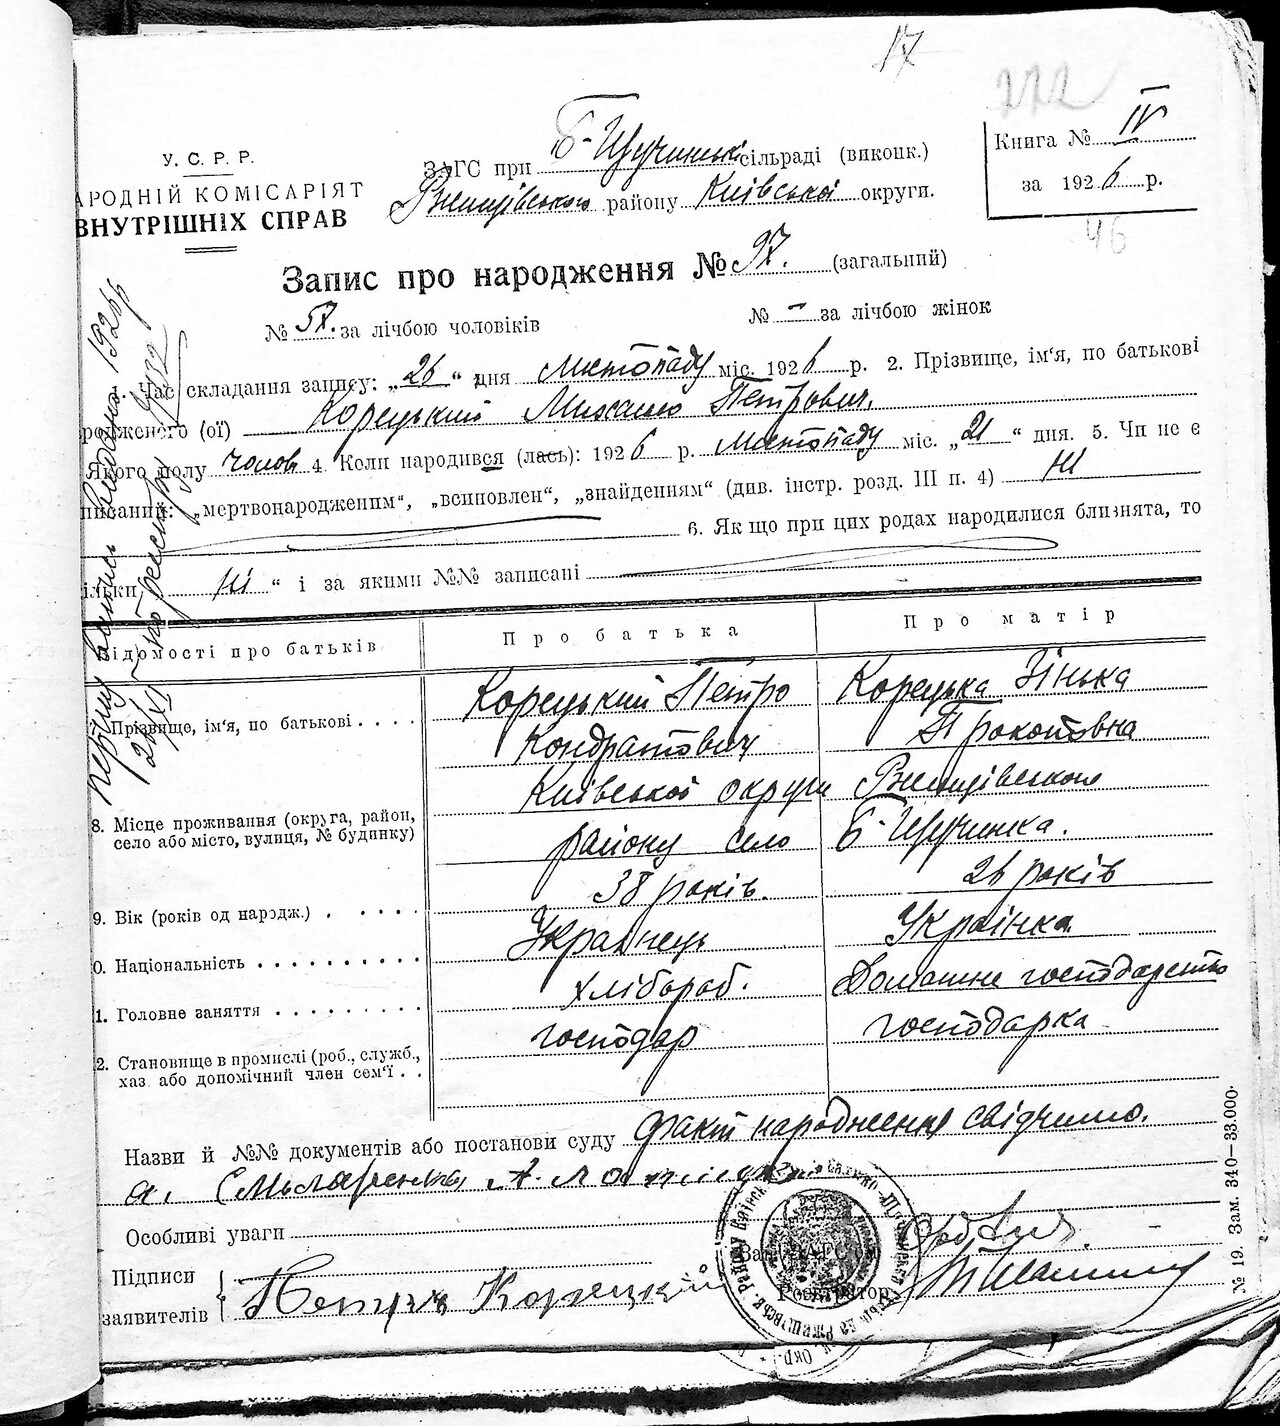 17
222
У. С. Р. Р.
АРОДНІЙ КОМІСАРІЯТ
ВНУТРІШНІХ СПРАВ
ЗАГС при Б-Щучинській сільраді (виконк.)
Ржищівського району Київської округи.
Книга № IV
за 1926 р.
46
Запис про народження № 97. (загальний)
№ 57. за лічбою чоловіків № – за лічбою жінок
1. Час складання запису: „26“ дня Листопаду міс. 1926 р. 2. Прізвище, ім'я, по батькові
родженого (ої) Корецький Михайло Петрович.
Якого полу чолов 4. Коли народився (лась): 1926 р. Листопаду міс. „21“ дня. 5. Чи не є
писаний: „мертвонародженим“, „всиновлен“, „знайденням“ (див. інстр. розд. III п. 4) Ні
6. Як що при цих родах народилися близнята, то
ільки Ні “ і за якими №№ записані
Відомості про батьків Про батька Про матір
7. Прізвище, ім'я, по батькові . . . . Корецький Петро Кондратович Корецька Зінька Прокоповна
8. Місце проживання (округа, район, село або місто, вулиця, № будинку) Київської округи Ржищівського району село Б-Щучинка.
9. Вік (років од народж.) . . . . . 38 років. 26 років
0. Національність . . . . . . . . . . Українець Українка.
1. Головне заняття . . . . . . . . . Хлібороб. Домашнє господарство
2. Становище в промислі (роб., служб., хаз. або допомічний член сем'ї . . господар господарка
Назви й №№ документів або постанови суду Факт народження свідчимо.
Особливі уваги
Підписи
заявителів Петро Корецкий
Зав. ЗАГС'ом
Реєстратор
№ 19. Зам. 340—33.000.